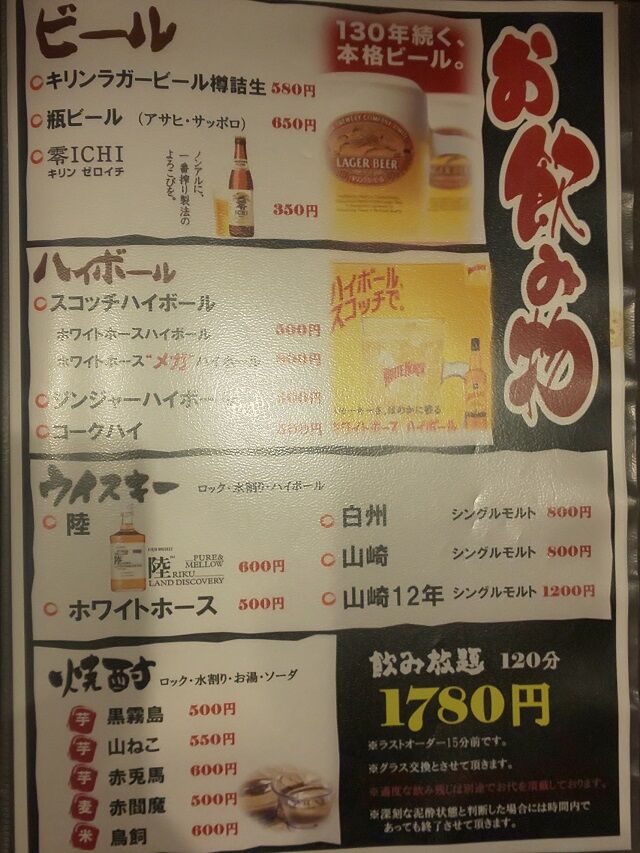 お飲み物
ビール
キリンラガービール樽詰生 580円
瓶ビール （アサヒ・サッポロ） 650円
零ICHI
キリン ゼロイチ
ノンアルに、
一番搾り製法の
よろこびを。
350円
130年続く、
本格ビール。
LAGER BEER
ハイボール
スコッチハイボール
ホワイトホースハイボール 500円
ホワイトホース"メガ"ハイボール 800円
ジンジャーハイボール
コークハイ
ハイボール、
スコッチで。
ホワイトホース ハイボール
ウイスキー
ロック・水割り・ハイボール
陸
陸
PURE&
MELLOW
RIKU
LAND DISCOVERY
600円
ホワイトホース 500円
白州 シングルモルト 800円
山崎 シングルモルト 800円
山崎12年 シングルモルト 1200円
焼酎
ロック・水割り・お湯・ソーダ
芋 黒霧島 500円
芋 山ねこ 550円
芋 赤兎馬 600円
麦 赤閻魔 500円
米 鳥飼 600円
飲み放題 120分
1780円
※ラストオーダー15分前です。
※グラス交換とさせて頂きます。
※過度な飲み残しは別途でお代を頂戴しております。
※深刻な泥酔状態と判断した場合には時間内で
あっても終了させて頂きます。